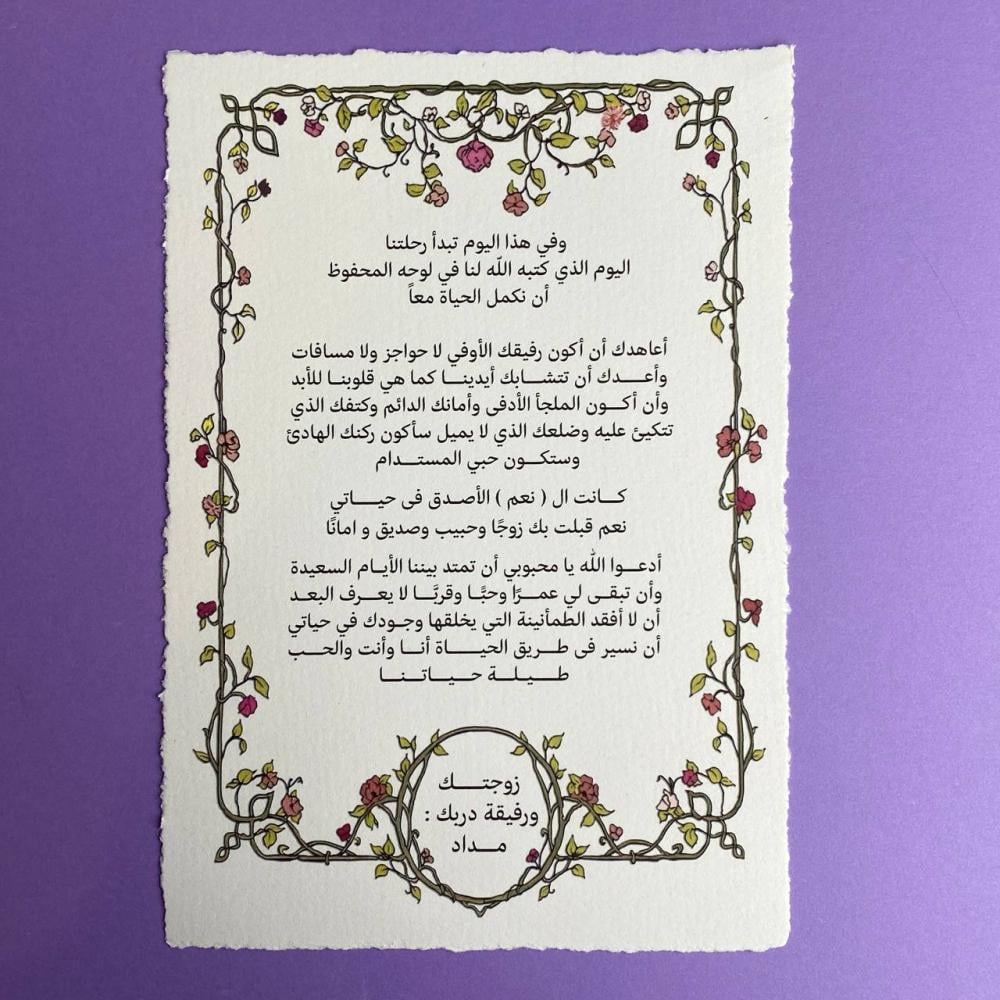 وفي هذا اليوم تبدأ رحلتنا
اليوم الذي كتبه اللّه لنا في لوحه المحفوظ
أن نكمل الحياة معاً
أعاهدك أن أكون رفيقك الأوفي لا حواجز ولا مسافات
وأعـــدك أن تتشـــابك أيدينـــا كما هي قلوبنـا للأبد
وأن أكـــون الملجأ الأدفى وأمانك الدائم وكتفك الذي
تتكيئ عليه وضلعك الذي لا يميل سأكون ركنك الهادئ
وستكـــون حبي المستـــدام
كـــانت ال ( نعم ) الأصـدق فى حيـــاتي
نعم قبلت بك زوجًا وحبيب وصديق و امانًا
أدعـــوا الله يا محبوبي أن تمتد بيننا الأيـام السعيدة
وأن تبقـى لي عمـرًا وحبًّـا وقربًـا لا يعـرف البعد
أن لا أفقد الطمأنينة التي يخلقها وجـودك في حياتي
أن نسير فى طـريق الحيـــاة أنـا وأنت والحـــب
طـــيلـــة حـــيـــاتـــنـــا
زوجتـــك
ورفيقة دربك :
مـــداد